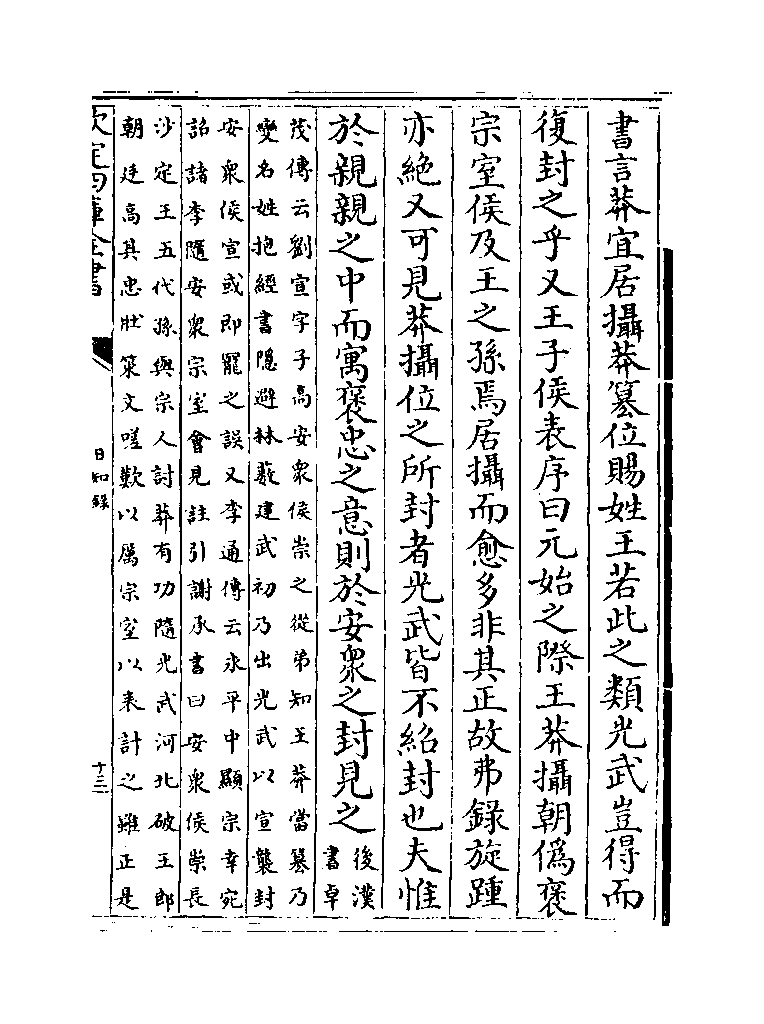 書言莽宜居攝莽篡位賜姓王若此之類光武豈得而
復封之乎又王子侯表序曰元始之際王莽攝朝偽褒
宗室侯及王之孫焉居攝而愈多非其正故弗錄旋踵
亦絶又可見莽攝位之所封者光武皆不紹封也夫惟
於親親之中而寓褒忠之意則於安衆之封見之
後漢
書卓
茂傳云劉宣字子高安衆侯崇之從弟知王莽當篡乃
變名姓抱經書隱避林藪建武初乃出光武以宣襲封
安衆侯宣或即寵之誤又李通傳云永平中顯宗幸宛
詔諸李隨安衆宗室會見註引謝承書曰安衆侯崇長
沙定王五代孫與宗人討莽有功隨光武河北破王郎
朝廷高其忠壯策文嗟歎以厲宗室以表計之雖正是
欽定四庫全書
日知錄
十三